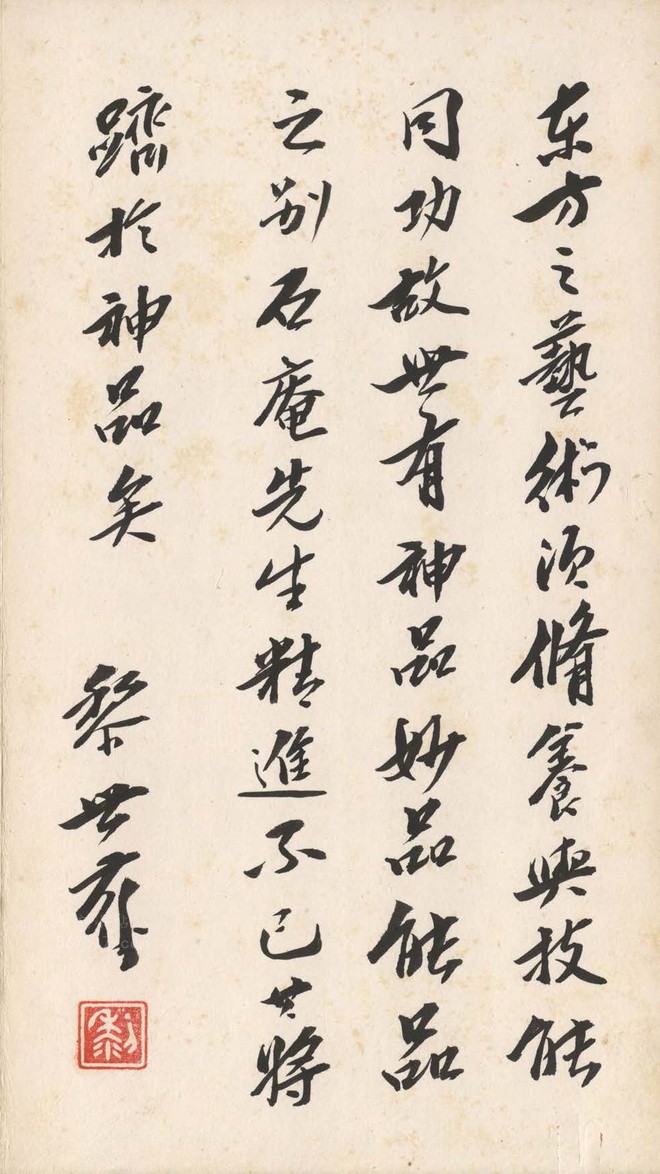 东方之藝術須脩養與技能
同功故世有神品妙品能品
之别石庵先生精進不已其將
躋於神品矣
黎世蘅
黎